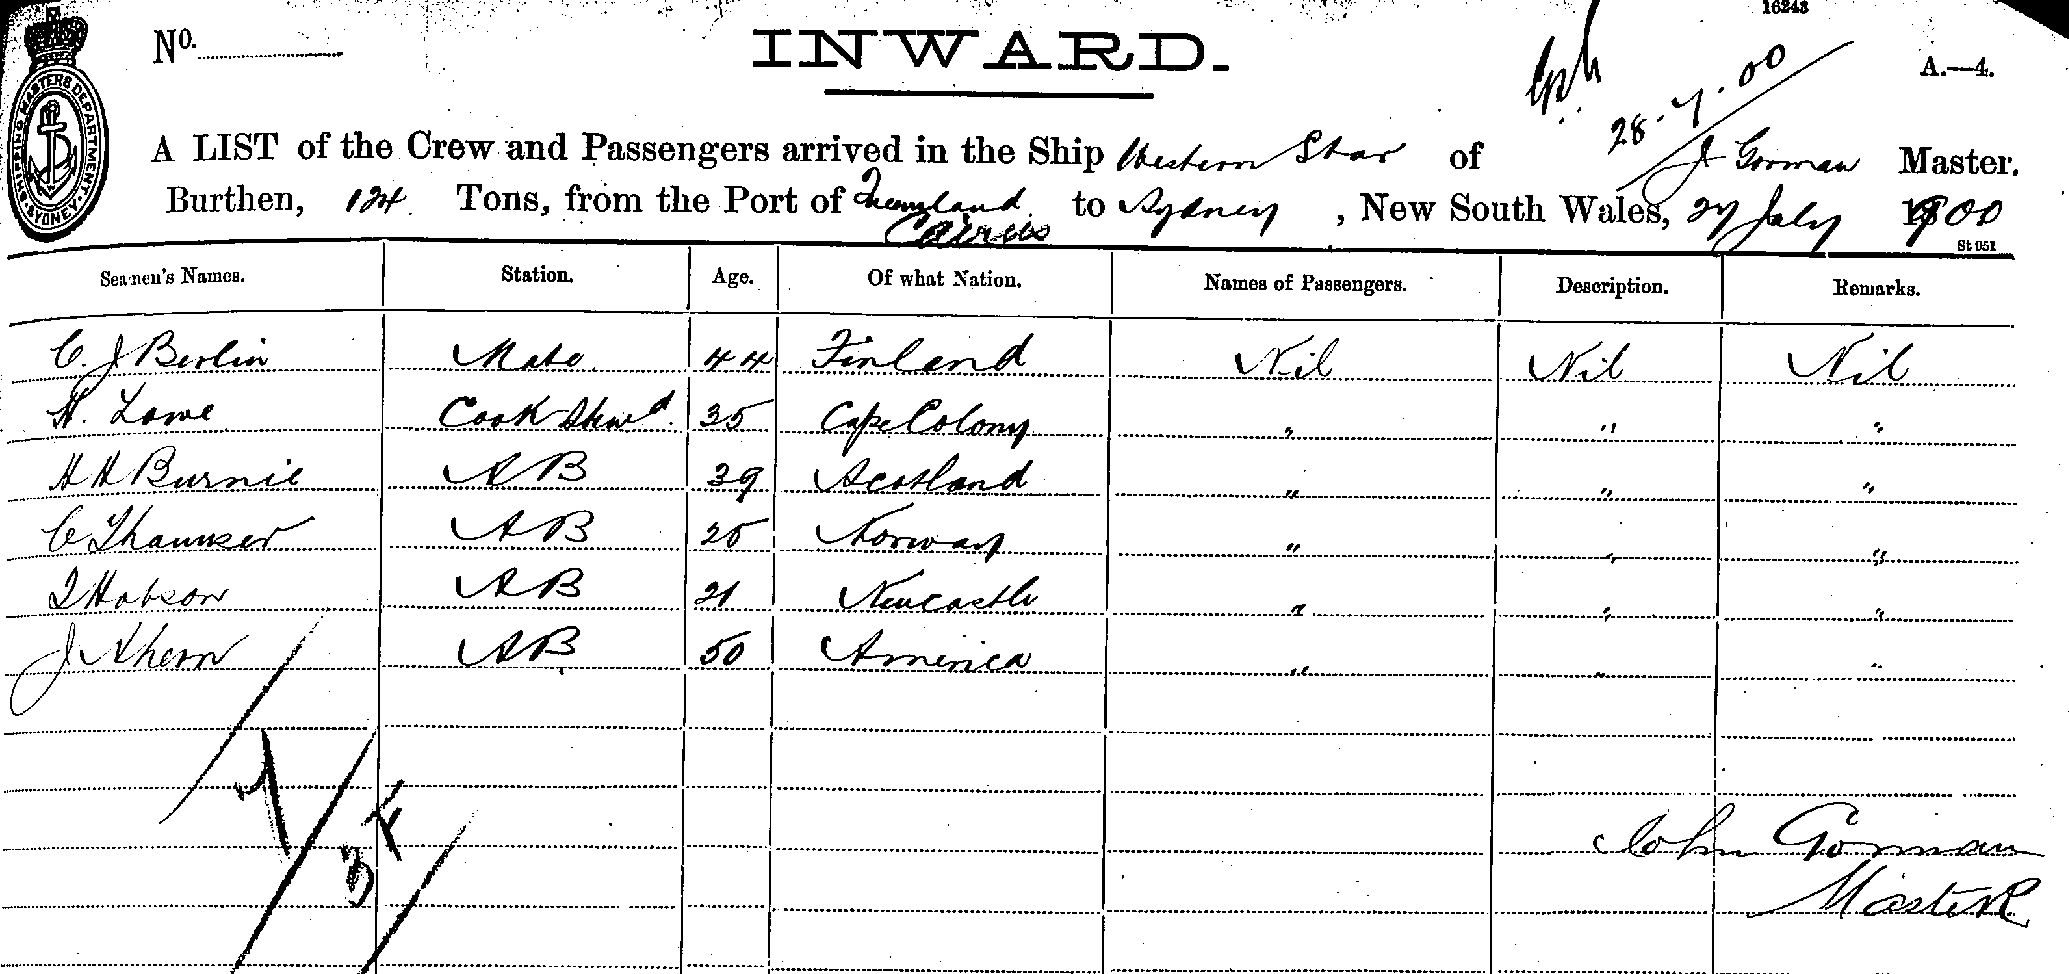 16243
No. INWARD. A.—4.
28.7.00
A LIST of the Crew and Passengers arrived in the Ship Western Star of J Gorman Master.
Burthen, 124 Tons, from the Port of Queensland to Sydney, New South Wales, 27 July 1900
Cairns
St 051
SHIPPING MASTERS DEPARTMENT. SYDNEY.
Seamen's Names. Station. Age. Of what Nation. Names of Passengers. Description. Remarks.
C. J Berlin Mate 44 Finland Nil Nil Nil
H. Lowe Cook Stwd. 35 Cape Colony " " "
H H Burnie AB 39 Scotland " " "
C Thaunser AB 25 Norway " " "
T Hobson AB 21 Newcastle " " "
J Ahern AB 50 America " " "
7
34
John Gorman
Master